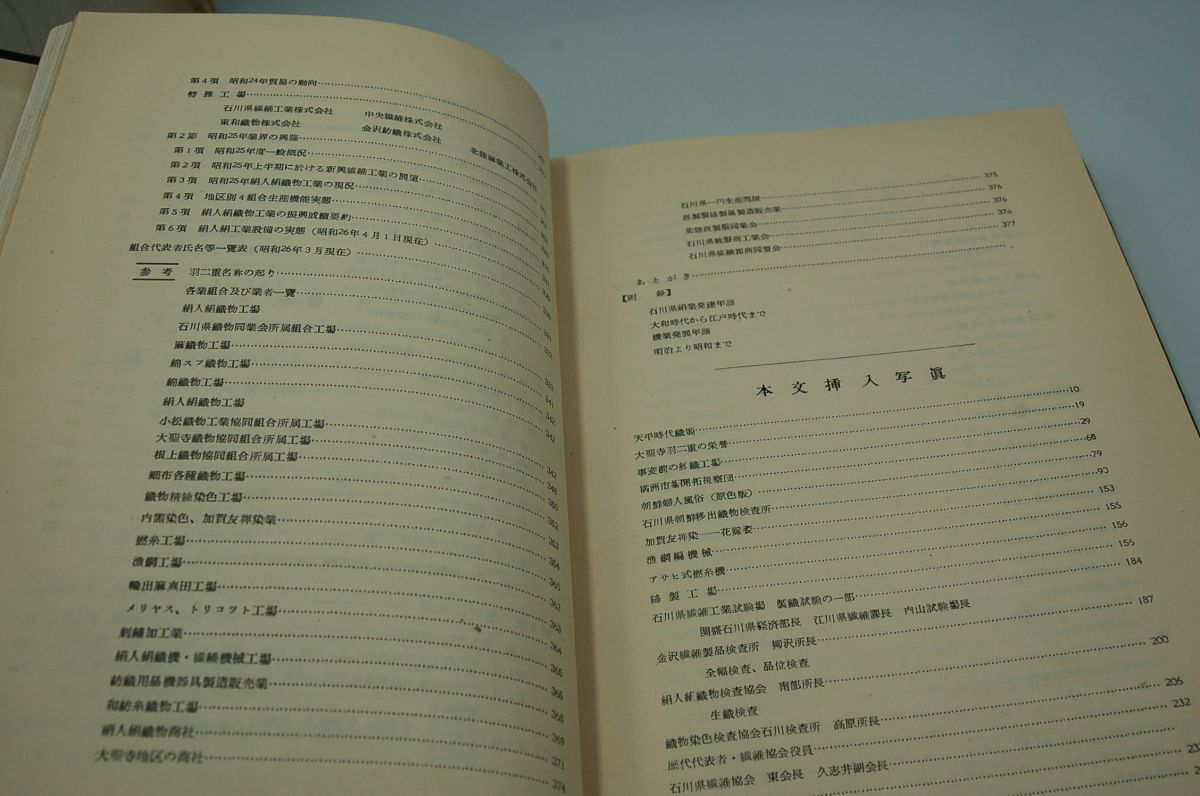 第4項 昭和24年貿易の動向
特殊工場
石川県繊維工業株式会社 中央繊維株式会社
東和織物株式会社 金沢紡織株式会社 北陸麻業工株式会社
第2節 昭和25年業界の興隆
第1項 昭和25年度一般概況
第2項 昭和25年上半期に於ける新興繊維工業の展望
第3項 昭和25年絹人絹織物工業の現況
第4項 地区別4組合生産機能実態
第5項 絹人絹織物工業の振興成績要約
第6項 絹人絹工業設備の実態(昭和26年4月1日現在)
組合代表者氏名等一覧表(昭和26年3月現在)
参考 羽二重名称の起り
各業組合及び業者一覧
絹人絹織物工場
石川県織物同業会所属組合工場
麻織物工場
綿スフ織物工場
綿織物工場
絹人絹織物工場
小松織物工業協同組合所属工場
大聖寺織物協同組合所属工場
根上織物協同組合所属工場
細布各種織物工場
織物精練染色工場
内需染色、加賀友禅染業
撚糸工場
漁網工場
輸出麻真田工場 363
メリヤス、トリコット工場 364
刺繡加工業 365
絹人絹織機・繊維機械工場 365
紡織用品機器具製造販売業 368
和紡糸織物工場 369
絹人絹織物商社 371
大聖寺地区の商社 374
石川県一円生産問屋 375
既製服縫製品製造販売業 376
北陸既製服同業会 376
石川県被服商工業会 376
石川県繊維卸商同盟会 377
あとがき
【附録】
石川県絹業発達年譜
大和時代から江戸時代まで
機業発展年譜
明治より昭和まで
本文挿入写真
天平時代織姫 10
大聖寺羽二重の栄誉 19
事変前の杉織工場 29
満洲市場開拓視察団 68
朝鮮婦人風俗(原色版) 79
石川県朝鮮移出織物検査所 90
加賀友禅染――花嫁姿 153
漁網編機械 155
アサヒ式撚糸機 156
縫製工場 156
石川県繊維工業試験場 製織試験の一部 184
関盛石川県経済部長 江川県繊維課長 内山試験場長
金沢繊維製品検査所 柳沢所長 187
全幅検査、品位検査
絹人絹織物検査協会 南部所長 200
生織検査
織物染色検査協会石川検査所 高原所長 205
歴代代表者・繊維協会役員 232
石川県繊維協会 東会長 久志井副会長